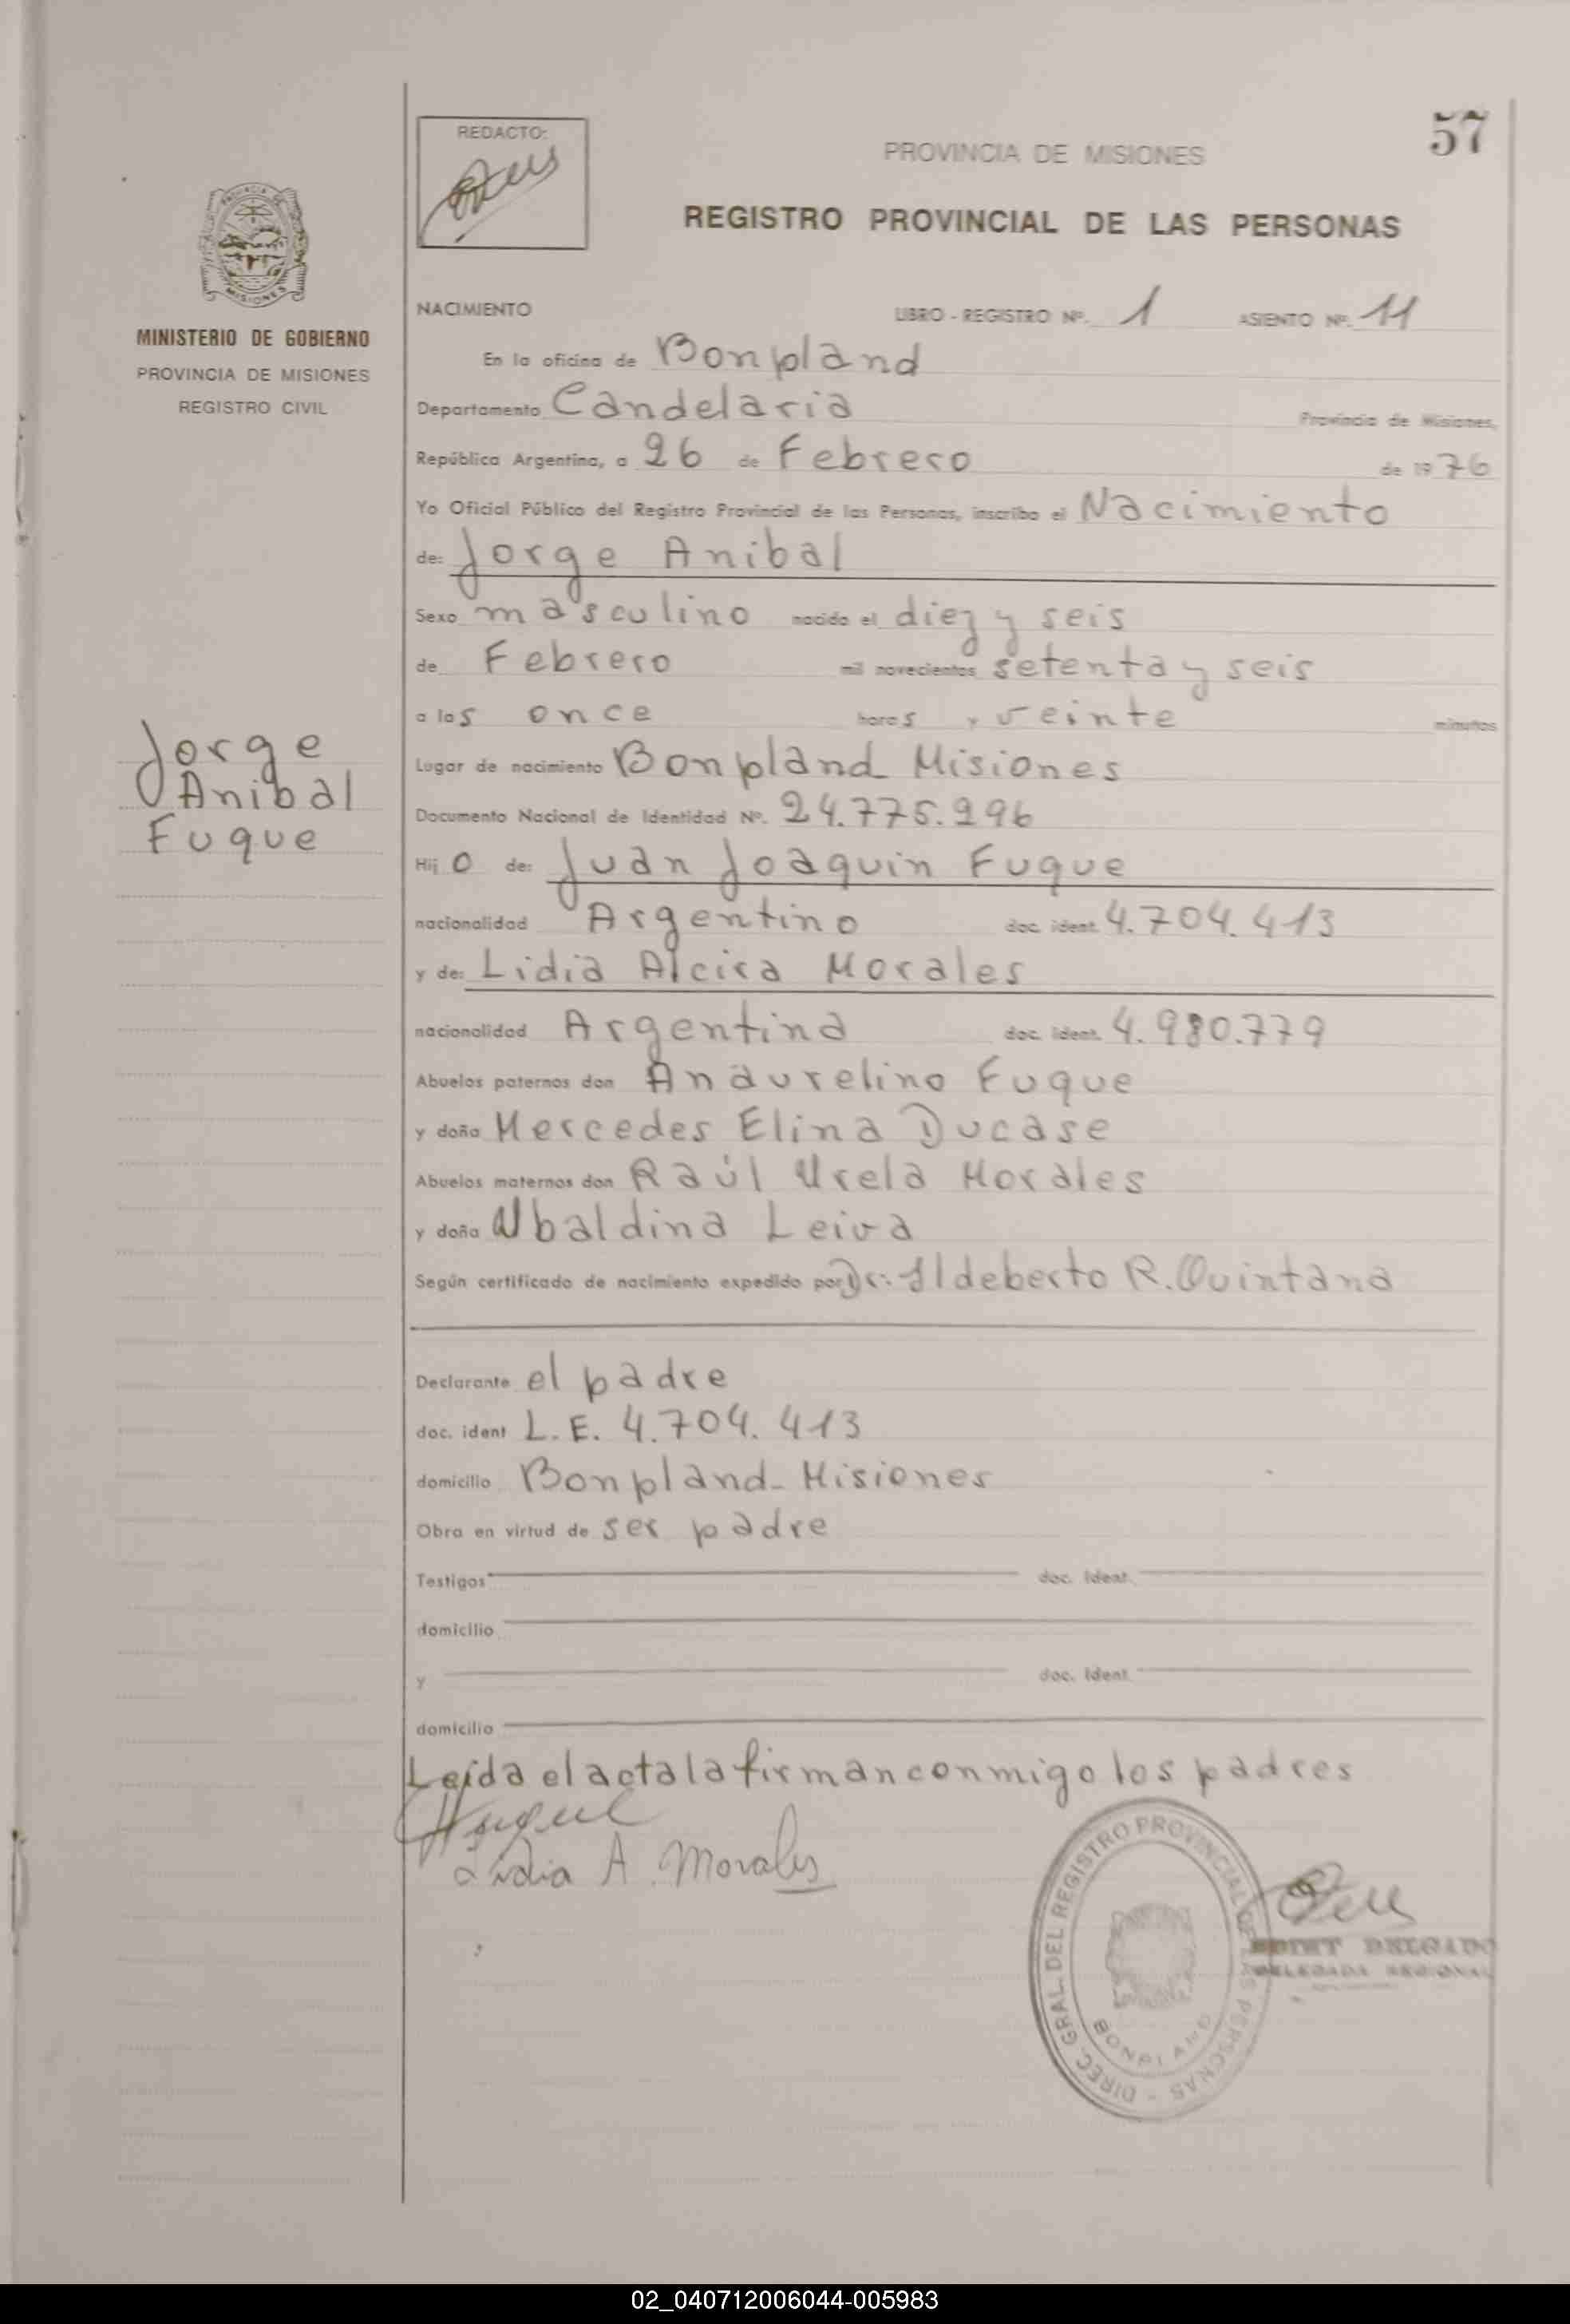 57
REDACTO:
PROVINCIA DE MISIONES
REGISTRO PROVINCIAL DE LAS PERSONAS
MINISTERIO DE GOBIERNO
PROVINCIA DE MISIONES
REGISTRO CIVIL
NACIMIENTO LIBRO - REGISTRO Nº. 1 ASIENTO Nº. 11
En la oficina de Bonpland
Departamento Candelaria Provincia de Misiones,
República Argentina, a 26 de Febrero de 1976
Yo Oficial Público del Registro Provincial de las Personas, inscribo el Nacimiento
de: Jorge Anibal
Sexo masculino nacido el diez y seis
de Febrero mil novecientos setenta y seis
a las once horas y veinte minutos
Jorge
Anibal
Fuque
Lugar de nacimiento Bonpland Misiones
Documento Nacional de Identidad Nº. 24.775.296
Hijo de: Juan Joaquin Fuque
nacionalidad Argentino doc. ident. 4.704.413
y de: Lidia Alcira Morales
nacionalidad Argentina doc. ident. 4.980.779
Abuelos paternos don Anaurelino Fuque
y doña Mercedes Elina Ducase
Abuelos maternos don Raúl Urela Morales
y doña Ubaldina Leiva
Según certificado de nacimiento expedido por Dr. Ildeberto R. Quintana
Declarante el padre
doc. ident L.E. 4.704.413
domicilio Bonpland - Misiones
Obra en virtud de ser padre
Testigos doc. ident.
domicilio
y doc. ident.
domicilio
Leída el acta la firman conmigo los padres
Lidia A. Morales
DIREC. GRAL. DEL REGISTRO PROVINCIAL DE LAS PERSONAS -
BONPLAND
DELGADO
DELEGADA REGIONAL
02_040712006044-005983